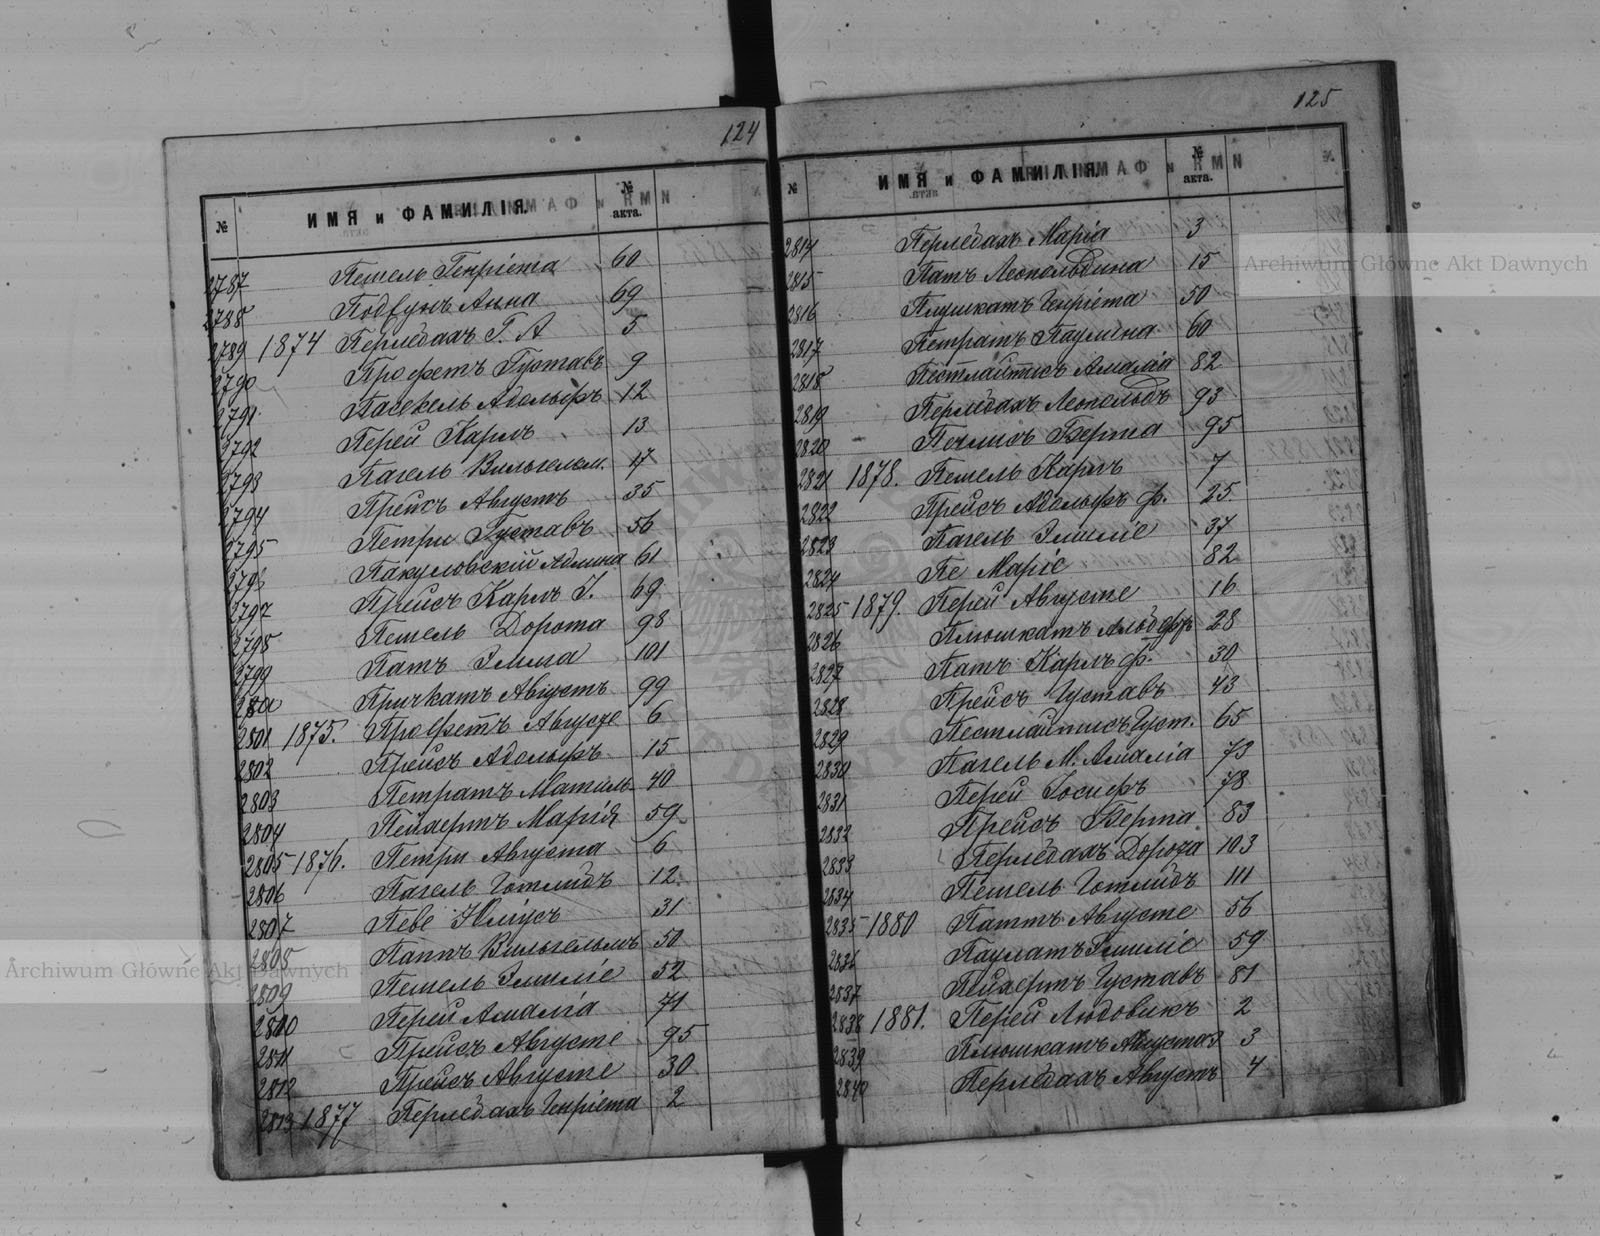 124
№ ИМЯ и ФАМИЛІЯ. № акта.
2787 Пешель Генріета 60
2788 Анна 69
2789 1874 Перлебахъ Г. А 5
2790 Профетъ Густавъ 9
2791 Пасекель Адольфъ 12
2792 Перей Карлъ 13
2793 Пагель Вильгельм. 17
2794 Прейсъ Августъ 35
2795 Петри Густавъ 56
2796 Пакуловскій 61
2797 Прейсъ Карлъ I. 69
2798 Пешель Дорота 98
2799 Патъ Эмма 101
2800 Причкатъ Августъ 99
2801 1875. Профетъ Августе 6
2802 Прейсъ Адольфъ 15
2803 Петратъ Матиль. 40
2804 Пейхертъ Марія 59
2805 1876. Петри Августа 6
2806 Пагель Готлибъ 12
2807 Певе Юліусъ 31
2808 Паппъ Вильгельмъ 50
2809 Пешель Эмиліе 52
2810 Перей Амалія 71
2811 Прейсъ Августе 95
2812 Прейсъ Августе 30
2813 1877 Перлебахъ Генріета 2
125
№ ИМЯ и ФАМИЛІЯ. № акта.
2814 Перлебахъ Марія 3
2815 Патъ Леопольдина 15
2816 Плушкатъ Генріета 50
2817 Петратъ Паулина 60
2818 Пестлайтисъ Амалія 82
2819 Перлебахъ Леопольдъ 93
2820 Берта 95
2821 1878. Пешель Карлъ 7
2822 Прейсъ Адольфъ Ф. 25
2823 Пагель Эмиліе 37
2824 Пе Маріе 82
2825 1879. Перей Августе 16
2826 Плюшкатъ 28
2827 Патъ Карлъ Ф. 30
2828 Прейсъ Густавъ 43
2829 Пестлайтисъ Густ. 65
2830 Пагель М. Амалія 73
2831 Перей Іосифъ 78
2832 Прейсъ Берта 83
2833 Перлебахъ 103
2834 Пешель Готлибъ 111
2835 1880 Паттъ Августе 56
2836 Паулатъ Эмиліе 59
2837 Пейхертъ Густавъ 81
2838 1881. Перей Людовикъ 2
2839 Плюшкатъ Августа 3
2840 Перлебахъ Августъ 4
Archiwum Główne Akt Dawnych
Archiwum Główne Akt Dawnych